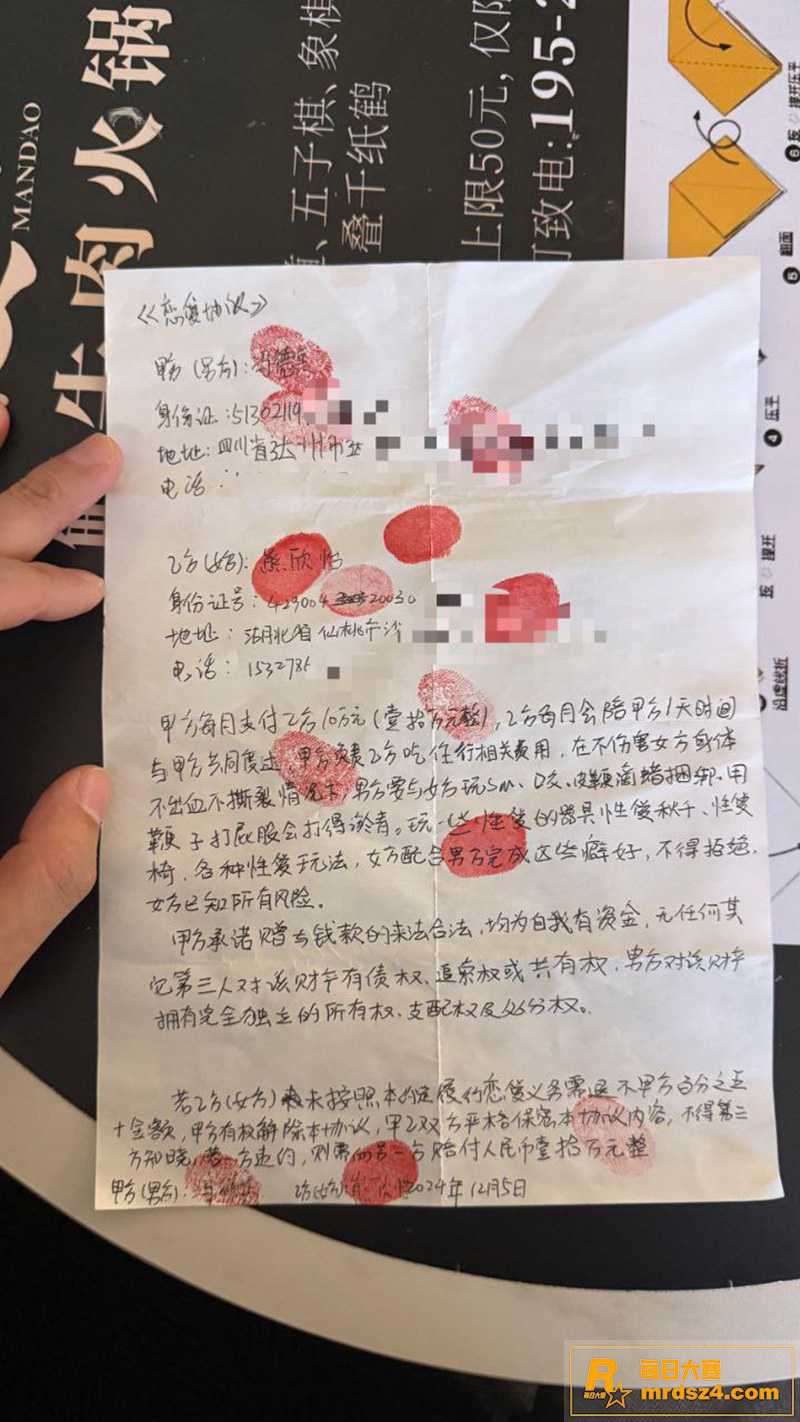 MANDAO
牛肉火锅
五子棋、象棋
叠千纸鹤
上限50元,仅限
可致电:195-2
⑥ 撑开压平
⑤ 翻面
④ 压平
沿虚线折
《恋爱协议》
甲方(男方):冯德
身份证:51302119
地址:四川省达州市
电话:
乙方(女方):欣怡
身份证号:429004 20030
地址:湖北省仙桃市沙
电话:1532785
甲方每月支付乙方10万元(壹拾万元整),乙方每月会陪甲方1天时间
与甲方共同度过,甲方负责乙方吃住行相关费用,在不伤害女方身体
不出血不撕裂情况下,男方要与女方玩Sm、口交、皮鞭滴蜡捆绑、用
鞭子打屁股会打得淤青。玩一些性爱的器具性爱秋千、性爱
椅、各种性爱玩法,女方配合男方完成这些癖好,不得拒绝.
女方已知所有风险。
甲方承诺赠与钱款的来法合法,均为自我有资金,无任何其
它第三人对该财产有债权、追索权或共有权,男方对该财产
拥有完全独立的所有权、支配权及处分权。
若乙方(女方)未按照本约定履行恋爱义务需退还甲方百分之五
十金额,甲方有权解除本协议,甲乙双方严格保密本协议内容,不得第三
方知晓,若一方违约,则需向另一方赔付人民币壹拾万元整
甲方(男方): 乙方(女方): 2024年12月5日
每日大赛
每日大赛
mrdsz24.com